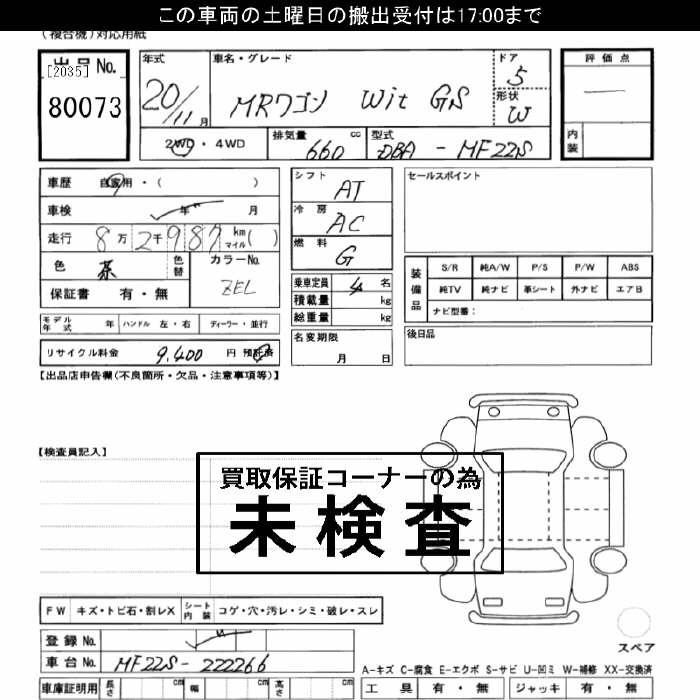 この車両の土曜日の搬出受付は17:00まで
(複合機)対応用紙
出品No. [2035] 80073
年式 20/11月
車名・グレード MRワゴン Wit GS
ドア 5
形状 W
評価点 —
内装
2WD・4WD
排気量 660 cc
型式 DBA-MF22S
車歴 自家用・( )
車検 年 月
走行 8万2千987 km マイル( )
色 茶 色替 カラーNo. ZEL
保証書 有・無
シフト AT
冷房 AC
燃料 G
乗車定員 4名
積載量 kg
総重量 kg
セールスポイント
装備品 S/R 純A/W P/S P/W ABS
純TV 純ナビ 革シート 外ナビ エアB
ナビ型番：
モデル年式 年 ハンドル 左・右 ディーラー・並行
リサイクル料金 9,400 円 預託済
名変期限 月 日
後日品
【出品店申告欄(不良箇所・欠品・注意事項等)】
【検査員記入】
買取保証コーナーの為
未検査
FW キズ・トビ石・割レX シート内装 コゲ・穴・汚レ・シミ・破レ・スレ
登録No.
車台No. MF22S-222266
スペア
A-キズ C-腐食 E-エクボ S-サビ U-凹ミ W-補修 XX-交換済
車庫証明用 長さ cm 幅 cm 高さ cm
工具 有・無 ジャッキ 有・無